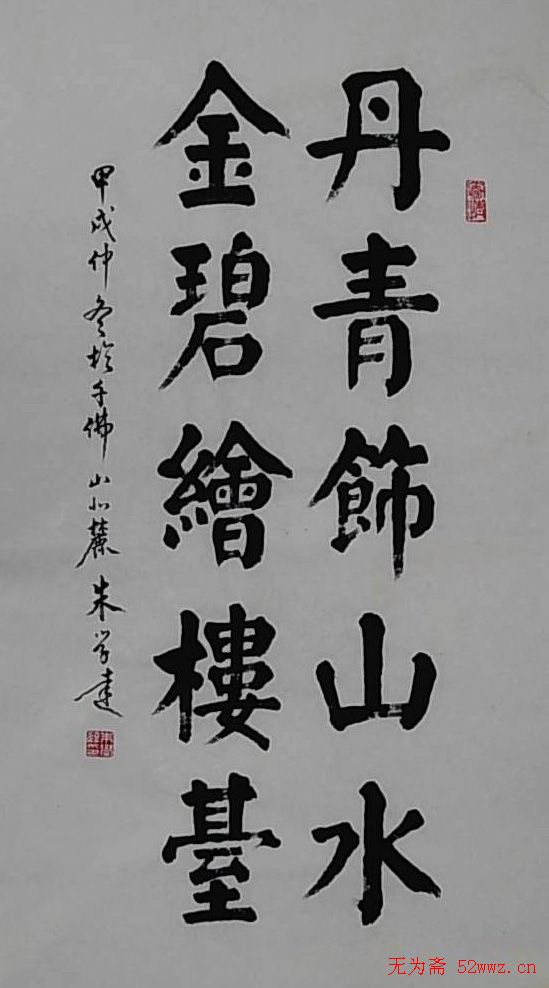 丹青飾山水
金碧繪樓臺
甲戌仲冬於千佛山北麓朱学達
无为斋 52wwz.cn